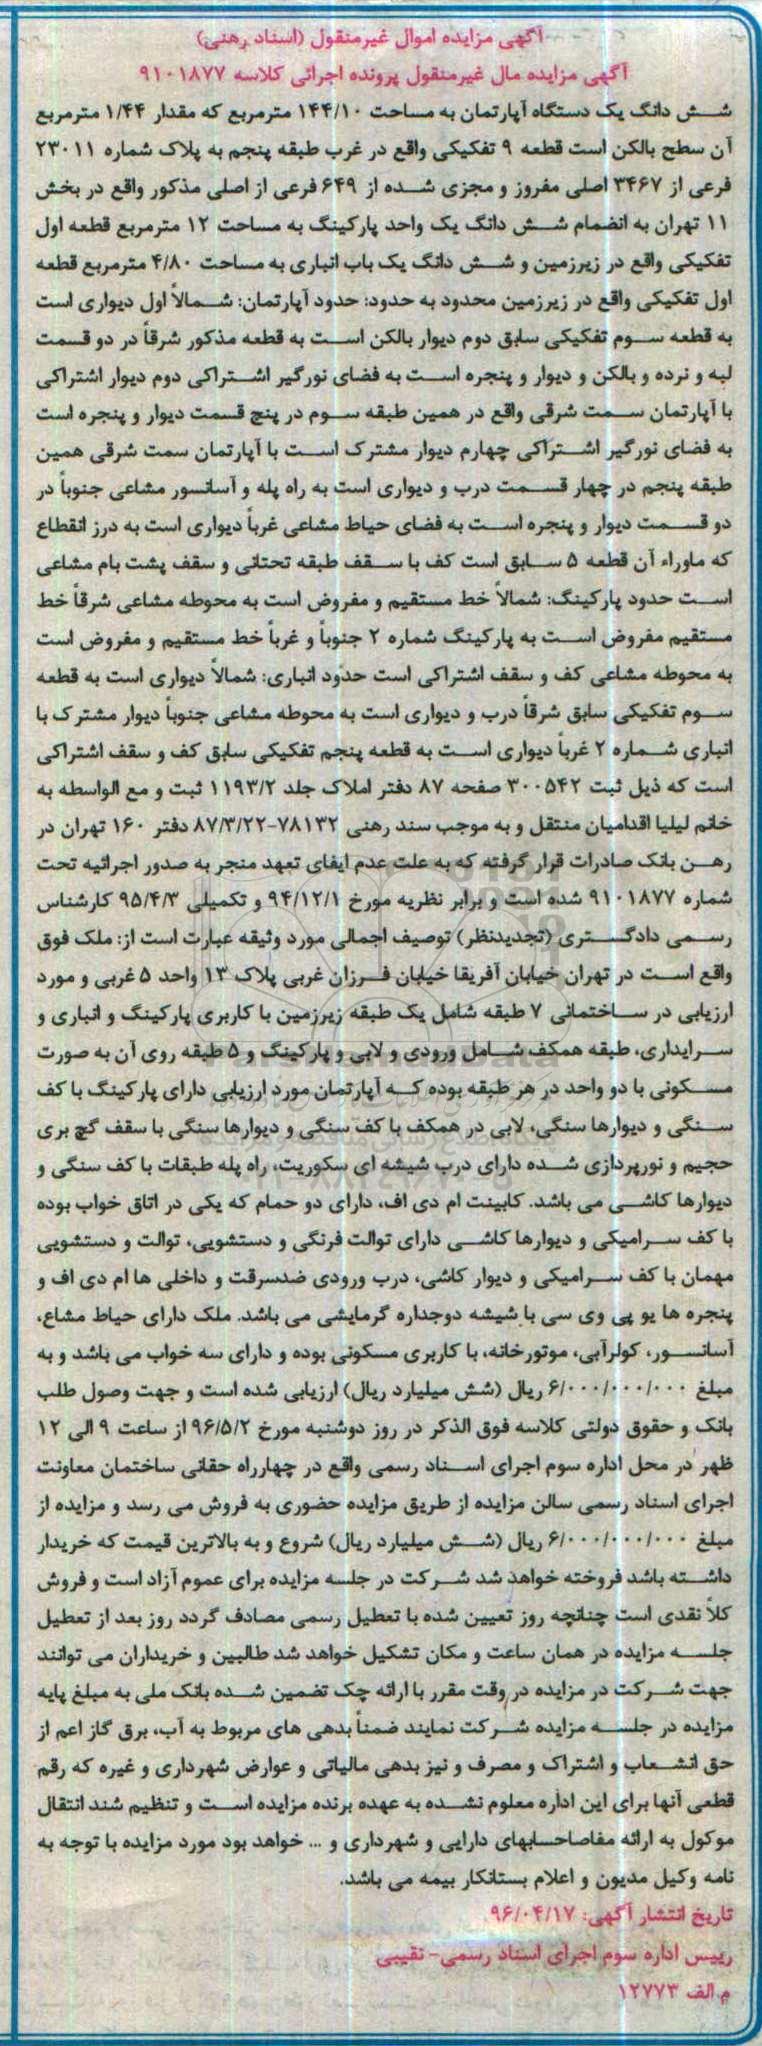 آگهی مزایده اموال غیرمنقول (اسناد رهنی)
آگهی مزایده مال غیرمنقول پرونده اجرائی کلاسه ۹۱۰۱۸۷۷
شش دانگ یک دستگاه آپارتمان به مساحت ۱۴۴/۱۰ مترمربع که مقدار ۱/۴۴ مترمربع
آن سطح بالکن است قطعه ۹ تفکیکی واقع در غرب طبقه پنجم به پلاک شماره ۲۳۰۱۱
فرعی از ۳۴۶۷ اصلی مفروز و مجزی شده از ۶۴۹ فرعی از اصلی مذکور واقع در بخش
۱۱ تهران به انضمام شش دانگ یک واحد پارکینگ به مساحت ۱۲ مترمربع قطعه اول
تفکیکی واقع در زیرزمین و شش دانگ یک باب انباری به مساحت ۴/۸۰ مترمربع قطعه
اول تفکیکی واقع در زیرزمین محدود به حدود: حدود آپارتمان: شمالاً اول دیواری است
به قطعه سوم تفکیکی سابق دوم دیوار بالکن است به قطعه مذکور شرقاً در دو قسمت
لبه و نرده و بالکن و دیوار و پنجره است به فضای نورگیر اشتراکی دوم دیوار اشتراکی
با آپارتمان سمت شرقی واقع در همین طبقه سوم در پنج قسمت دیوار و پنجره است
به فضای نورگیر اشتراکی چهارم دیوار مشترک است با آپارتمان سمت شرقی همین
طبقه پنجم در چهار قسمت درب و دیواری است به راه پله و آسانسور مشاعی جنوباً در
دو قسمت دیوار و پنجره است به فضای حیاط مشاعی غرباً دیواری است به درز انقطاع
که ماوراء آن قطعه ۵ سابق است کف با سقف طبقه تحتانی و سقف پشت بام مشاعی
است حدود پارکینگ: شمالاً خط مستقیم و مفروض است به محوطه مشاعی شرقاً خط
مستقیم مفروض است به پارکینگ شماره ۲ جنوباً و غرباً خط مستقیم و مفروض است
به محوطه مشاعی کف و سقف اشتراکی است حدود انباری: شمالاً دیواری است به قطعه
سوم تفکیکی سابق شرقاً درب و دیواری است به محوطه مشاعی جنوباً دیوار مشترک با
انباری شماره ۲ غرباً دیواری است به قطعه پنجم تفکیکی سابق کف و سقف اشتراکی
است که ذیل ثبت ۳۰۰۵۴۲ صفحه ۸۷ دفتر املاک جلد ۱۱۹۳/۲ ثبت و مع الواسطه به
خانم لیلیا اقدامیان منتقل و به موجب سند رهنی ۷۸۱۳۲-۸۷/۳/۲۲ دفتر ۱۶۰ تهران در
رهن بانک صادرات قرار گرفته که به علت عدم ایفای تعهد منجر به صدور اجرائیه تحت
شماره ۹۱۰۱۸۷۷ شده است و برابر نظریه مورخ ۹۴/۱۲/۱ و تکمیلی ۹۵/۴/۳ کارشناس
رسمی دادگستری (تجدیدنظر) توصیف اجمالی مورد وثیقه عبارت است از: ملک فوق
واقع است در تهران خیابان آفریقا خیابان فرزان غربی پلاک ۱۳ واحد ۵ غربی و مورد
ارزیابی در ساختمانی ۷ طبقه شامل یک طبقه زیرزمین با کاربری پارکینگ و انباری و
سرایداری، طبقه همکف شامل ورودی و لابی و پارکینگ و ۵ طبقه روی آن به صورت
مسکونی با دو واحد در هر طبقه بوده که آپارتمان مورد ارزیابی دارای پارکینگ با کف
سنگی و دیوارها سنگی، لابی در همکف با کف سنگی و دیوارها سنگی با سقف گچ بری
حجیم و نورپردازی شده دارای درب شیشه ای سکوریت، راه پله طبقات با کف سنگی و
دیوارها کاشی می باشد. کابینت ام دی اف، دارای دو حمام که یکی در اتاق خواب بوده
با کف سرامیکی و دیوارها کاشی دارای توالت فرنگی و دستشویی، توالت و دستشویی
مهمان با کف سرامیکی و دیوار کاشی، درب ورودی ضدسرقت و داخلی ها ام دی اف و
پنجره ها یو پی وی سی با شیشه دوجداره گرمایشی می باشد. ملک دارای حیاط مشاع،
آسانسور، کولرآبی، موتورخانه، با کاربری مسکونی بوده و دارای سه خواب می باشد و به
مبلغ ۶/۰۰۰/۰۰۰/۰۰۰ ریال (شش میلیارد ریال) ارزیابی شده است و جهت وصول طلب
بانک و حقوق دولتی کلاسه فوق الذکر در روز دوشنبه مورخ ۹۶/۵/۲ از ساعت ۹ الی ۱۲
ظهر در محل اداره سوم اجرای اسناد رسمی واقع در چهارراه حقانی ساختمان معاونت
اجرای اسناد رسمی سالن مزایده از طریق مزایده حضوری به فروش می رسد و مزایده از
مبلغ ۶/۰۰۰/۰۰۰/۰۰۰ ریال (شش میلیارد ریال) شروع و به بالاترین قیمت که خریدار
داشته باشد فروخته خواهد شد شرکت در جلسه مزایده برای عموم آزاد است و فروش
کلاً نقدی است چنانچه روز تعیین شده با تعطیل رسمی مصادف گردد روز بعد از تعطیل
جلسه مزایده در همان ساعت و مکان تشکیل خواهد شد طالبین و خریداران می توانند
جهت شرکت در مزایده در وقت مقرر با ارائه چک تضمین شده بانک ملی به مبلغ پایه
مزایده در جلسه مزایده شرکت نمایند ضمناً بدهی های مربوط به آب، برق گاز اعم از
حق انشعاب و اشتراک و مصرف و نیز بدهی مالیاتی و عوارض شهرداری و غیره که رقم
قطعی آنها برای این اداره معلوم نشده به عهده برنده مزایده است و تنظیم سند انتقال
موکول به ارائه مفاصاحسابهای دارایی و شهرداری و ... خواهد بود مورد مزایده با توجه به
نامه وکیل مدیون و اعلام بستانکار بیمه می باشد.
تاریخ انتشار آگهی: ۹۶/۰۴/۱۷
رییس اداره سوم اجرای اسناد رسمی- نقیبی
م الف ۱۲۷۷۳